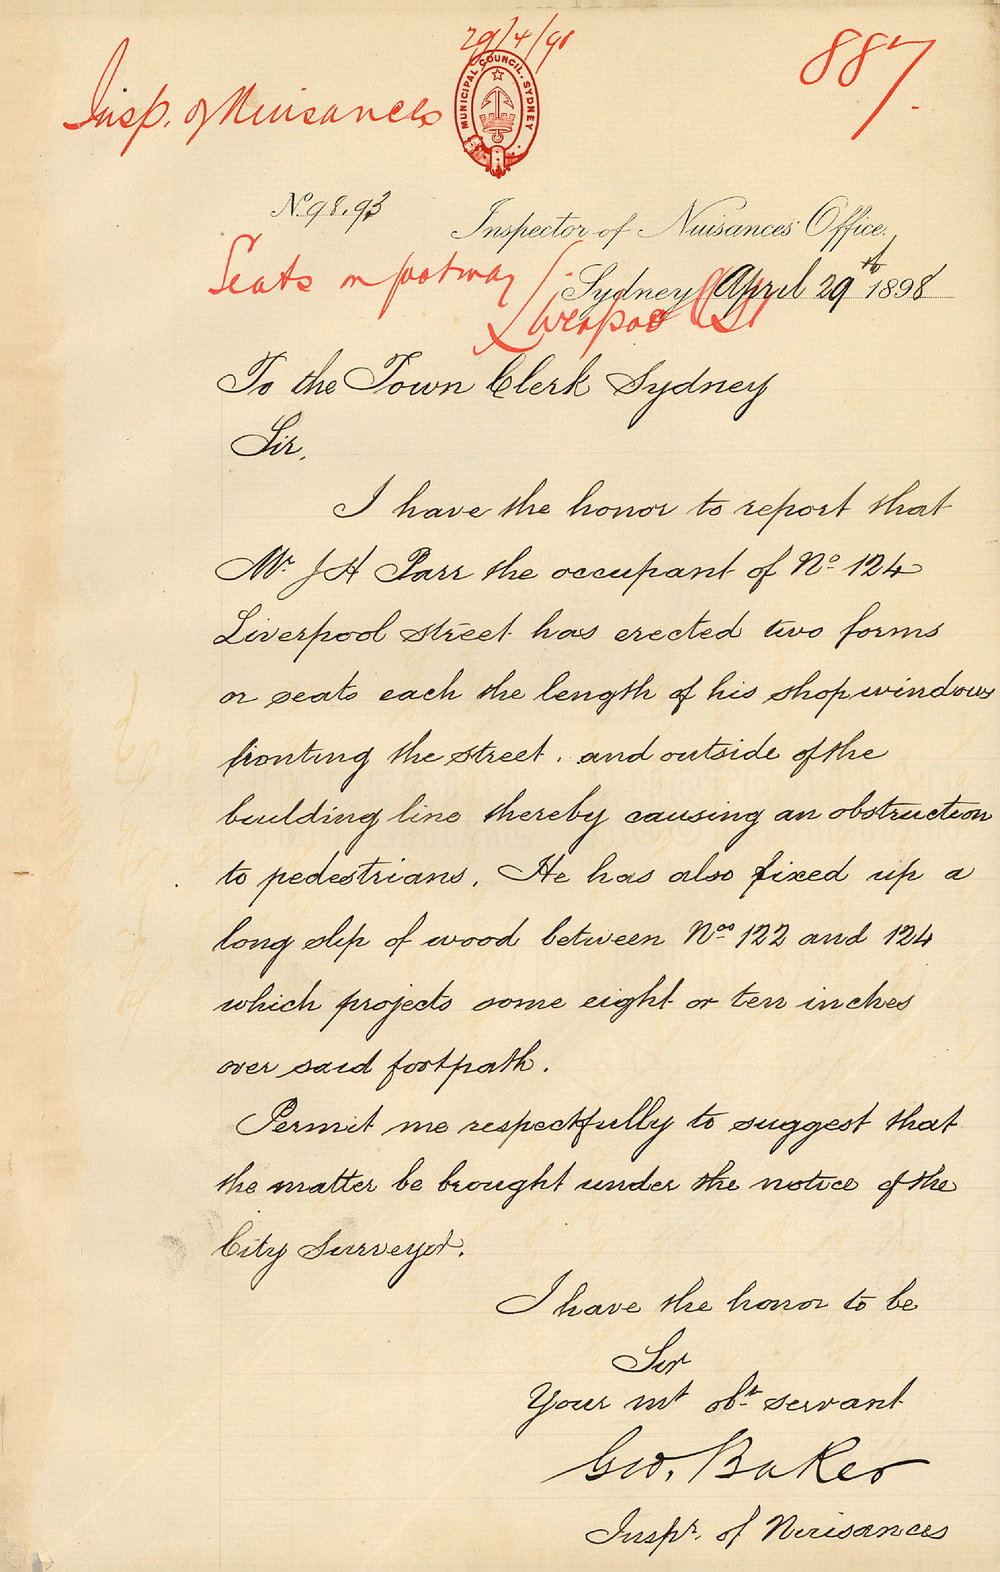 29/4/98
887.
Insp. of Nuisances
MUNICIPAL COUNCIL. SYDNEY
No. 98.93
Inspector of Nuisances' Office.
Seats on footway /.
Sydney April 29th 1898
Liverpool St
To the Town Clerk Sydney
Sir,
I have the honor to report that
Mr. J H Parr the occupant of No 124
Liverpool street has erected two forms
or seats each the length of his shop windows
fronting the street, and outside of the
building line thereby causing an obstruction
to pedestrians. He has also fixed up a
long slip of wood between Nos 122 and 124
which projects some eight or ten inches
over said footpath.
Permit me respectfully to suggest that
the matter be brought under the notice of the
City Surveyor.
I have the honor to be
Sir
Your mt obt servant
Geo. Baker
Inspr. of Nuisances